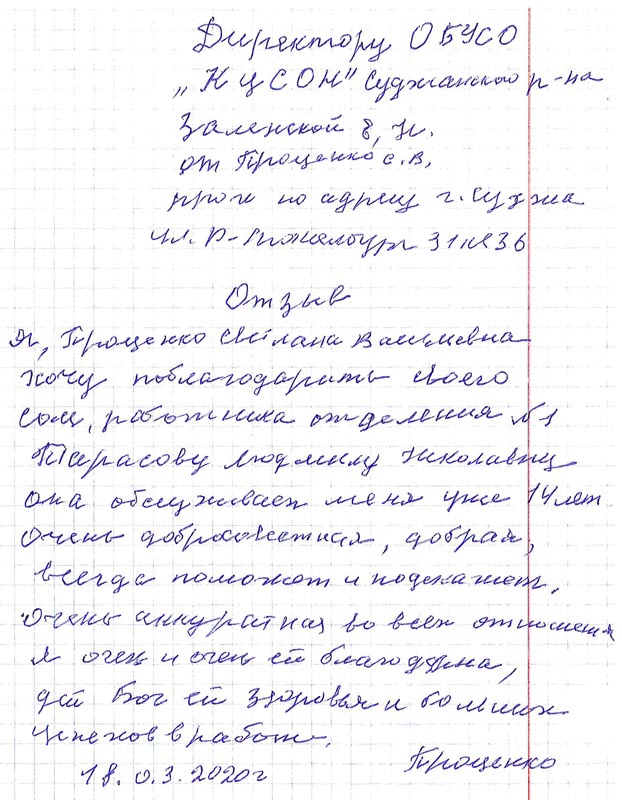 Директору ОБУСО
„КЦСОН" Суджанского р-на
Заленской Е, Н.
от Проценко С. В,
прож по адресу г. Суджа
ул. Р-Люксембург 31 кв 36
Отзыв
Я, Проценко Светлана Васильевна
хочу поблагодарить своего
соц, работника отделения №1
Тарасову Людмилу Николавну
она обслуживает меня уже 14 лет
очень доброжетная, добрая,
всегда поможет и подскажет,
очень аккуратная во всех отношения
я очень и очень ей благодарна,
дай Бог ей здоровья и больших
успехов в работе.
18.0.3.2020г Проценко